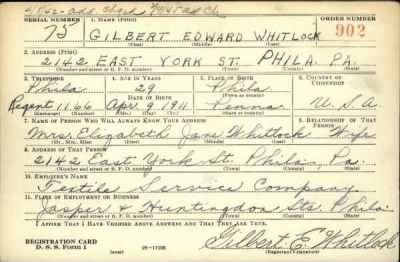 SERIAL NUMBER 1. NAME (Print) ORDER NUMBER
75 GILBERT EDWARD WHITLOCK 902
(First) (Middle) (Last)
2. ADDRESS (Print)
2142 EAST YORK ST. PHILA. PA.
(Number and street or R. F. D. number) (Town) (County) (State)
3. TELEPHONE 4. AGE IN YEARS 5. PLACE OF BIRTH 6. COUNTRY OF CITIZENSHIP
Phila 29 Phila
DATE OF BIRTH (Town or county)
Regent 1166 Apr. 9 1911 Penna. U.S.A.
(Exchange) (Number) (Mo.) (Day) (Yr.) (State or country)
7. NAME OF PERSON WHO WILL ALWAYS KNOW YOUR ADDRESS 8. RELATIONSHIP OF THAT PERSON
Mrs. Elizabeth Jane Whitlock Wife
(Mr., Mrs., Miss) (First) (Middle) (Last)
9. ADDRESS OF THAT PERSON
2142 East York St. Phila. Pa.
(Number and street or R. F. D. number) (Town) (County) (State)
10. EMPLOYER'S NAME
Textile Service Company
11. PLACE OF EMPLOYMENT OR BUSINESS
Jasper & Huntingdon Sts. Phila.
(Number and street or R. F. D. number) (Town) (County) (State)
I AFFIRM THAT I HAVE VERIFIED ABOVE ANSWERS AND THAT THEY ARE TRUE.
REGISTRATION CARD
D. S. S. Form 1 (over) 16-17105 Gilbert E. Whitlock
(Registrant's signature)